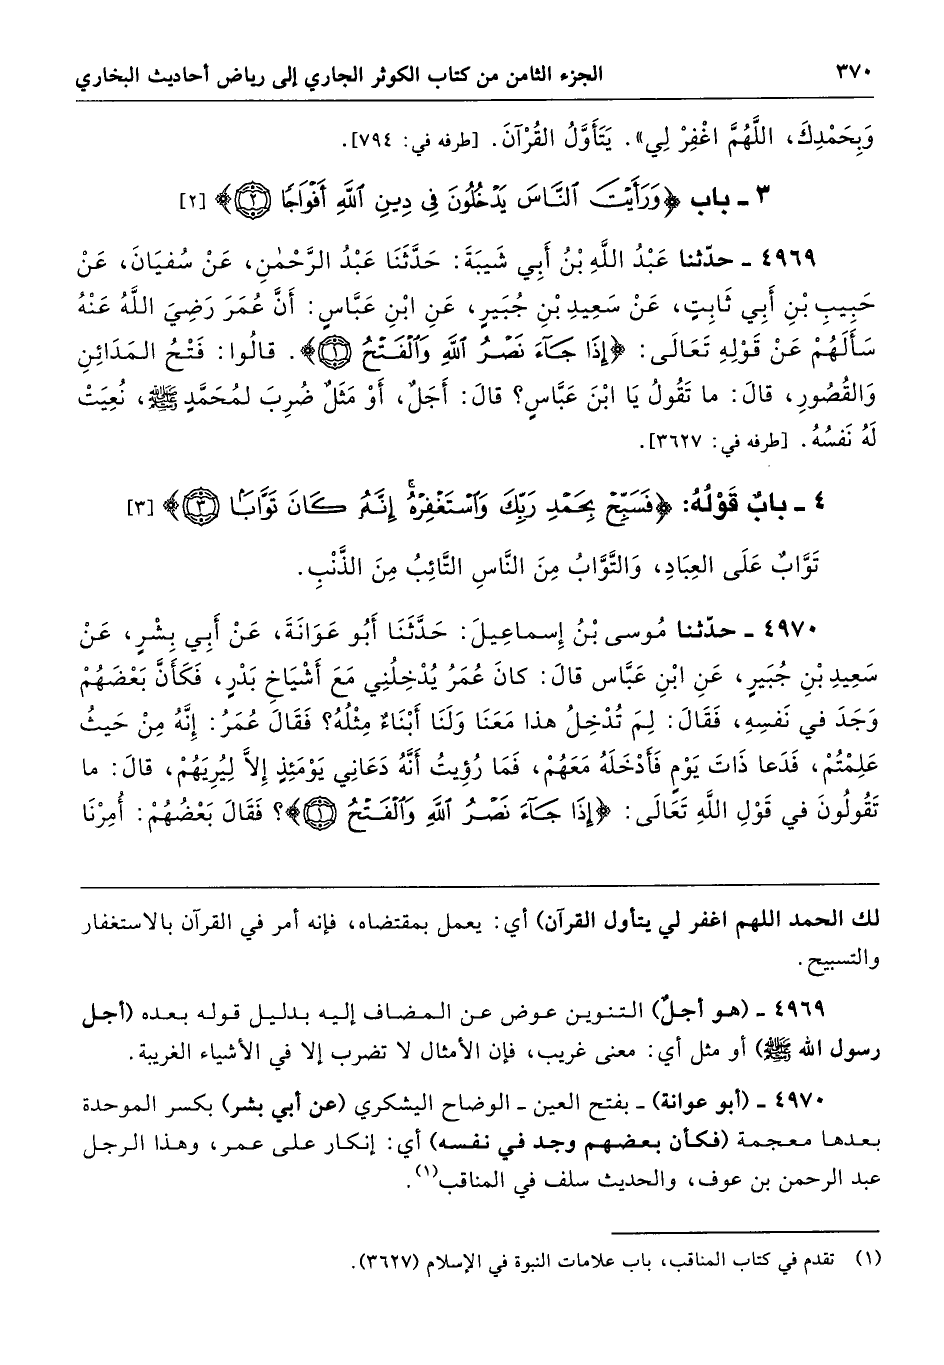 ٣٧٠ الجزء الثامن من كتاب الكوثر الجاري إلى رياض أحاديث البخاري
وَبِحَمْدِكَ، اللَّهُمَّ اغْفِرْ لِي». يَتَأَوَّلُ القُرْآنَ. [طرفه في: ٧٩٤].
٣ ـ باب ﴿وَرَأَيْتَ ٱلنَّاسَ يَدْخُلُونَ فِى دِينِ ٱللَّهِ أَفْوَاجًا ٢﴾ [٢]
٤٩٦٩ ـ حدّثنا عَبْدُ اللَّهِ بْنُ أَبِي شَيبَةَ: حَدَّثَنَا عَبْدُ الرَّحْمٰنِ، عَنْ سُفيَانَ، عَنْ
حَبِيبِ بْنِ أَبِي ثَابِتٍ، عَنْ سَعِيدِ بْنِ جُبَيرٍ، عَنِ ابْنِ عَبَّاسٍ: أَنَّ عُمَرَ رَضِيَ اللَّهُ عَنْهُ
سَأَلَهُمْ عَنْ قَوْلِهِ تَعَالَى: ﴿إِذَا جَآءَ نَصْرُ ٱللَّهِ وَٱلْفَتْحُ ١﴾. قالُوا: فَتْحُ المَدَائِنِ
وَالقُصُورِ، قالَ: ما تَقُولُ يَا ابْنَ عَبَّاسٍ؟ قالَ: أَجَلٌ، أَوْ مَثَلٌ ضُرِبَ لمُحَمَّدٍ ﷺ، نُعِيَتْ
لَهُ نَفسُهُ. [طرفه في: ٣٦٢٧].
٤ ـ بابٌ قَوْلُهُ: ﴿فَسَبِّحْ بِحَمْدِ رَبِّكَ وَٱسْتَغْفِرْهُ إِنَّهُۥ كَانَ تَوَّابًۢا ٣﴾ [٣]
تَوَّابٌ عَلَى العِبَادِ، وَالتَّوَّابُ مِنَ النَّاسِ التَّائِبُ مِنَ الذَّنْبِ.
٤٩٧٠ ـ حدّثنا مُوسى بْنُ إِسماعِيلَ: حَدَّثَنَا أَبُو عَوَانَةَ، عَنْ أَبِي بِشْرٍ، عَنْ
سَعِيدِ بْنِ جُبَيرٍ، عَنِ ابْنِ عَبَّاس قالَ: كانَ عُمَرُ يُدْخِلُنِي مَعَ أَشْيَاخِ بَدْرٍ، فَكَأَنَّ بَعْضَهُمْ
وَجَدَ في نَفسِهِ، فَقَالَ: لِمَ تُدْخِلُ هذا مَعَنَا وَلَنَا أَبْنَاءٌ مِثْلُهُ؟ فَقَالَ عُمَرُ: إِنَّهُ مِنْ حَيثُ
عَلِمْتُمْ، فَدَعا ذَاتَ يَوْمٍ فَأَدْخَلَهُ مَعَهُمْ، فَمَا رُؤِيتُ أَنَّهُ دَعَانِي يَوْمَئِذٍ إِلاَّ لِيُرِيَهُمْ، قالَ: ما
تَقُولُونَ في قَوْلِ اللَّهِ تَعَالَى: ﴿إِذَا جَآءَ نَصْرُ ٱللَّهِ وَٱلْفَتْحُ ١﴾؟ فَقَالَ بَعْضُهُمْ: أُمِرْنَا
لك الحمد اللهم اغفر لي يتأول القرآن) أي: يعمل بمقتضاه، فإنه أمر في القرآن بالاستغفار
والتسبيح.
٤٩٦٩ ـ (هو أجلٌ) التنوين عوض عن المضاف إليه بدليل قوله بعده (أجل
رسول الله ﷺ) أو مثل أي: معنى غريب، فإن الأمثال لا تضرب إلا في الأشياء الغريبة.
٤٩٧٠ ـ (أبو عوانة) ـ بفتح العين ـ الوضاح اليشكري (عن أبي بشر) بكسر الموحدة
بعدها معجمة (فكأن بعضهم وجد في نفسه) أي: إنكار على عمر، وهذا الرجل
عبد الرحمن بن عوف، والحديث سلف في المناقب(١).
(١) تقدم في كتاب المناقب، باب علامات النبوة في الإسلام (٣٦٢٧).